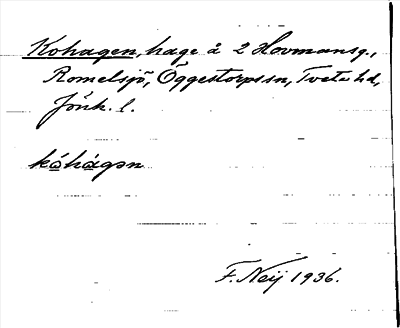 Kohagen, hage å 2 Hovmansg.,
Romelsjö, Öggestorps sn, Tveta hd,
Jönk. l.
kóhágən
F. Neij 1936.